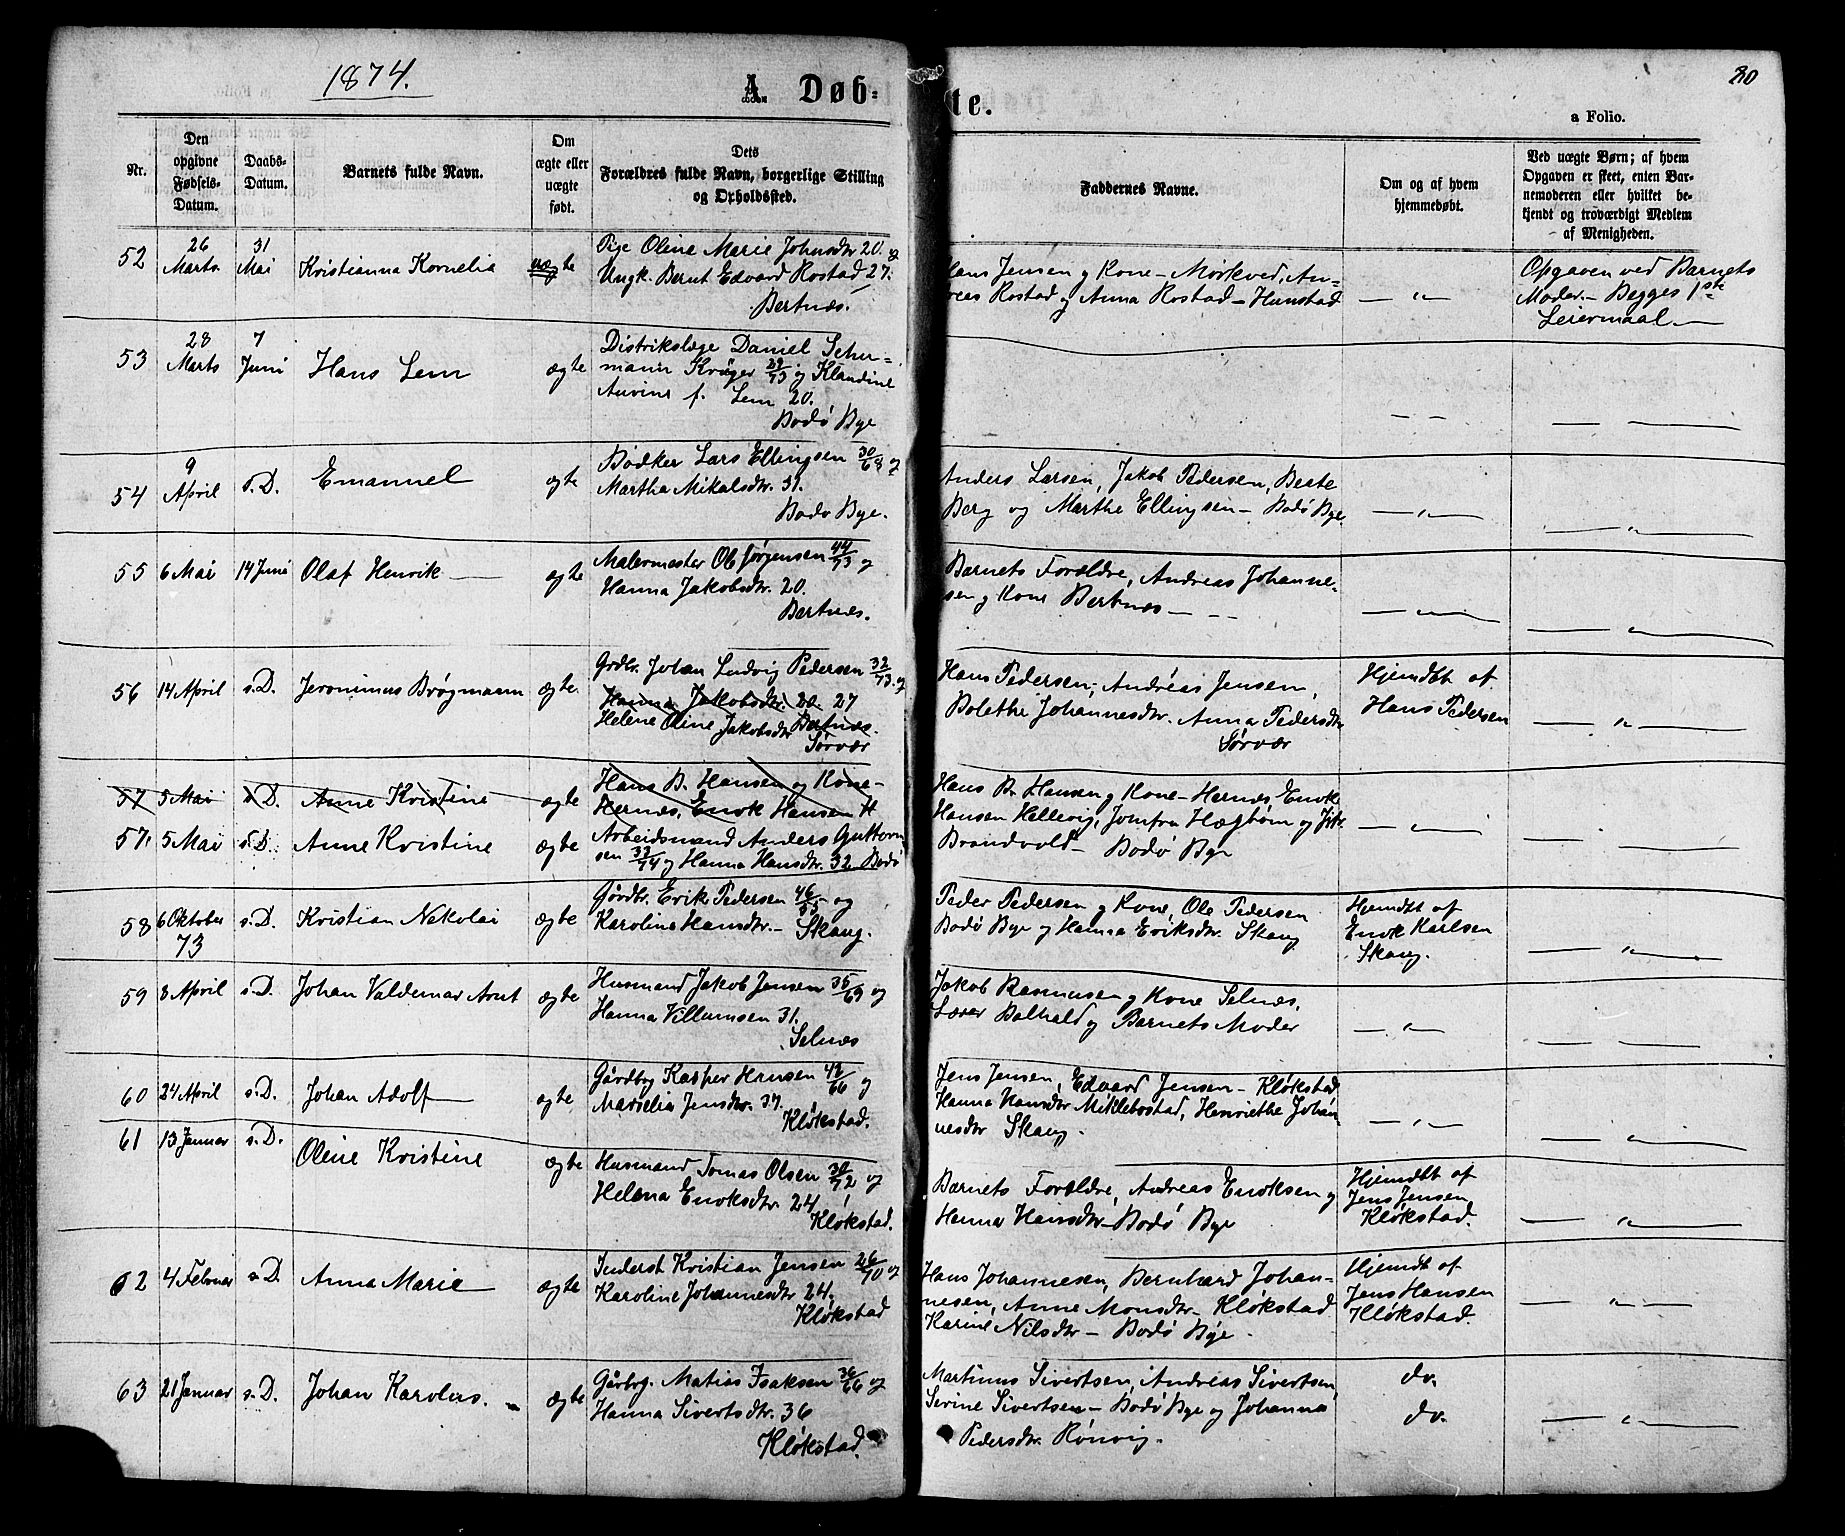 1874.
A Døb-
te.
20
a Folio.
Nr.
Den opgivne Fødsels-Datum.
Daabs-Datum.
Barnets fulde Navn.
Om ægte eller uægte født.
Dets Forældres fulde Navn, borgerlige Stilling og Opholdssted.
Faddernes Navne.
Om og af hvem hjemmedøbt.
Ved uægte Børn; af hvem Opgaven er skeet, enten Barnemoderen eller hvilket bekjendt og troværdigt Medlem af Menigheden.
52 26 Marts 31 Mai Kristianna Kornelia uægte
Pige Oline Marie Johnsdtr 20 og
Ungk. Bernt Edvard Rostad 27.
Bertnæs.
Hans Jensen og Kone - Mørkved, An-
dreas Rostad og Anna Rostad - Hunstad
— " —
Opgaven ved Barnets
Moder. - Begges 1ste
Leiermaal —
53 28 Marts 7 Juni Hans Lem ægte
Distriktslæge Daniel Schu-
mann Krüger 39/73 og Klaudine
Anvine f. Lem 20.
Bodø Bye
— " —
54 9 April s.D. Emanuel ægte
Bødker Lars Ellingsen 30/68 og
Martha Mikalsdtr. 31.
Bodø Bye.
Anders Larsen, Jakob Pedersen, Berte
Berg og Marthe Ellingsen - Bodø Bye
— " — — " —
55 6 Mai 14 Juni Olaf Henrik — ægte
Malermester Ole Jørgensen 44/73 og
Hanna Jakobsdtr. 20.
Bertnæs.
Barnets Forældre, Andreas Johanne-
sen og Kone Bertnæs - - -
— " — — " —
56 14 April s.D. Jeronimus Brøgmann ægte
Grdbr. Johan Ludvig Pedersen 32/73. og
Hanna Jakobsdtr. 20. 27
Helene Oline Jakobsdtr Bertnæs.
Sørvær
Hans Pedersen, Andréas Jensen,
Bolethe Johannesdtr. Anna Pedersdtr
Sørvær
Hjemdbt af
Hans Pedersen
— " —
57 5 Mai s.D. Anne Kristine ægte
Hans B. Hansen og Kone -
Hernæs, Enok Hansen H
57. 5 Mai s.D. Anne Kristine ægte
Arbeidsmand Anders Guttorm
sen 33/74 og Hanna Hansdtr. 32 Bodø
Hans B. Hansen og Kone - Hernæs, Enok
Hansen Hellevig, Jomfru Hægbom og
Brandvold - Bodø Bye
— " — — " —
58 6 Oktober 73 s.D. Kristian Nekolai ægte
Gårdbr. Erik Pedersen 46/55 og
Karoline Hansdtr. - Skaug.
Peder Pedersen og Kone, Ole Pedersen
Bodø Bye og Hanna Eriksdtr. Skaug
Hjemdbt af
Enok Karlsen
Skaug.
— " —
59 8 April s.D. Johan Valdemar Arnt ægte
Husmand Jakob Jensen 35/69 og
Hanna Villumsen 31.
Selnæs
Jakob Rasmusen og Kone Selnæs,
Lærer Balhald og Barnets Moder
— " — — " —
60 24 April s.D. Johan Adolf — ægte
Gårdbrg Kasper Hansen 42/66 og
Marselia Jensdtr. 37.
Kløkstad.
Jens Jensen, Edvard Jensen - Kløkstad
Hanna Hansdtr Miklebostad, Henriethe Johan-
nesdtr Skaug.
— " — — " —
61 13 Januar s.D. Oline Kristine ægte
Husmand Tomas Olsen 30/72 og
Helena Enoksdtr. 24
Kløkstad.
Barnets Forældre, Andreas Enoksen og
Hanna Hansdtr - Bodø Bye
Hjemdbt af
Jens Jensen
Kløkstad.
— " —
62 4 Februar s.D. Anna Marie ægte
Inderst Kristian Jensen 26/70 og
Karoline Johannesdtr 24.
Kløkstad
Hans Johannesen, Bernhard Johan-
nesen, Anne Monsdtr - Kløkstad
Karine Nilsdtr - Bodø Bye.
Hjemdt af
Jens Hansen
Kløkstad
— " —
63 21 Januar s.D. Johan Karolus. ægte
Gårbrg. Matias Isaksen 36/66 og
Hanna Sivertsdtr. 36
Kløkstad.
Martinus Sivertsen, Andreas Sivertsen,
Sivine Sivertsen - Bodø Bye og Johanna
Pedersdtr. Rønvig.
do.
do.
— " —